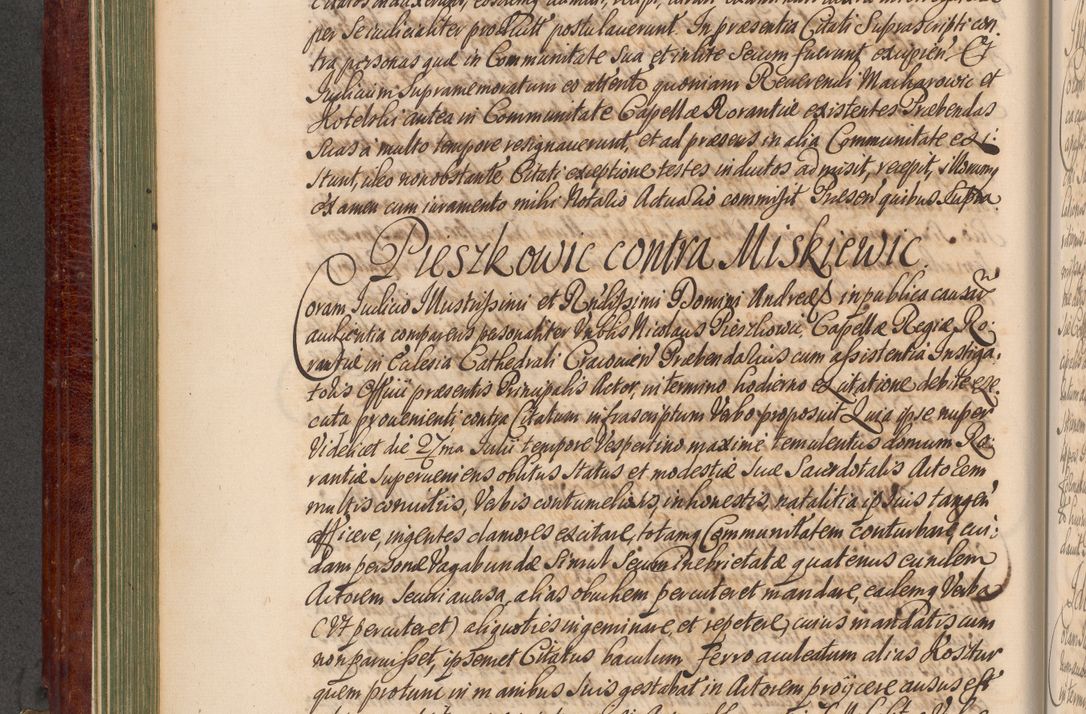 per se iudicialiter pro Xbitt postulauerunt. In præsentia Citati Suprascripti con
tra personas quæ in Communitate Sua et in lite Secum fuerunt excipien̄ Et
Iudicium Supramemoratum eo attento quoniam Reuerendi Macharowic et
Kotelski antea in Communitate Capellæ Rorantiæ existentes Præbendas
suas a multo tempore resignauerunt, et ad præsens in alia Communitate exi
stunt, ideo non obstante Citati exceptione testes inductos admisit, recepit, illorumq
examen cum iuramento mihi Notario Actuario commisit Præsen̄ quibus Supra
Pieszkowic contra Miskiewic
Coram Iudicio Illustrissimi et Rndissimi Domini Andreæ in publica causar̄
audientia comparens personaliter Vnblis Nicolaus Pieszkowic, Capellæ Regiæ Ro-
rantiæ in Eclesia Cathedrali Cracouien̄ Præbendarius cum assistentia Instiga-
toris Officii præsentis Principalis Actor, in termino hodierno ex citatione debite exe-
cuta prouenienti contra Citatum infrascriptum Verbo proposuit Quia ipse nuper
Videlicet die 27ma Iulii tempore Vespertino maxime temulentus domum Ro-
rantiæ superueniens oblitus Status et modestiæ suæ Sacerdotalis Actorem
multis conuitiis, Verbis contumeliosis, inhonestis, natalitia ipsius tangen̄
afficere, ingentes clamores excitare, totamq Communitatem conturbare, cui-
dam personæ Vagabundæ Simul Secum inebrietatæ quatenus eundem
Actorem Seudiauersa, alias obuchem percuteret mandare, eademq Verba
(Vt percuteret) aliquoties ingeminare, et repetere, cuius mandatis cum
non paruisset, ipsemet Citatus baculum ferro aculeatum alias Kosztur
quem protunc in manibus suis gestabat in Actorem proiicere ausus est